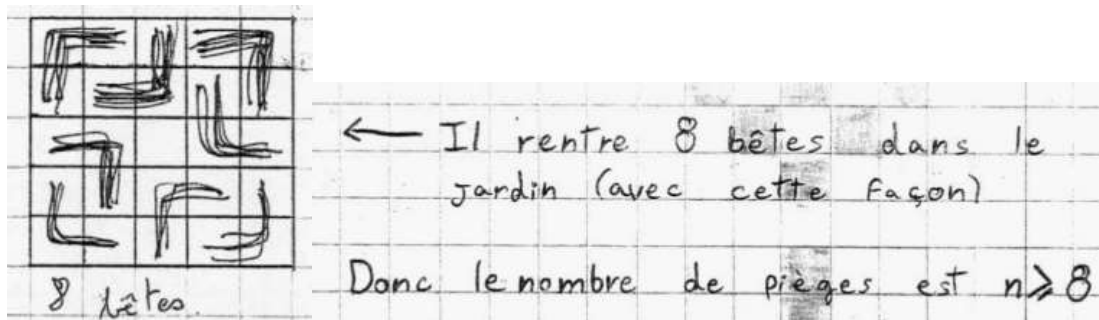 8 bêtes.
← Il rentre 8 bêtes dans le
jardin (avec cette façon)
Donc le nombre de pièges est n⩾8